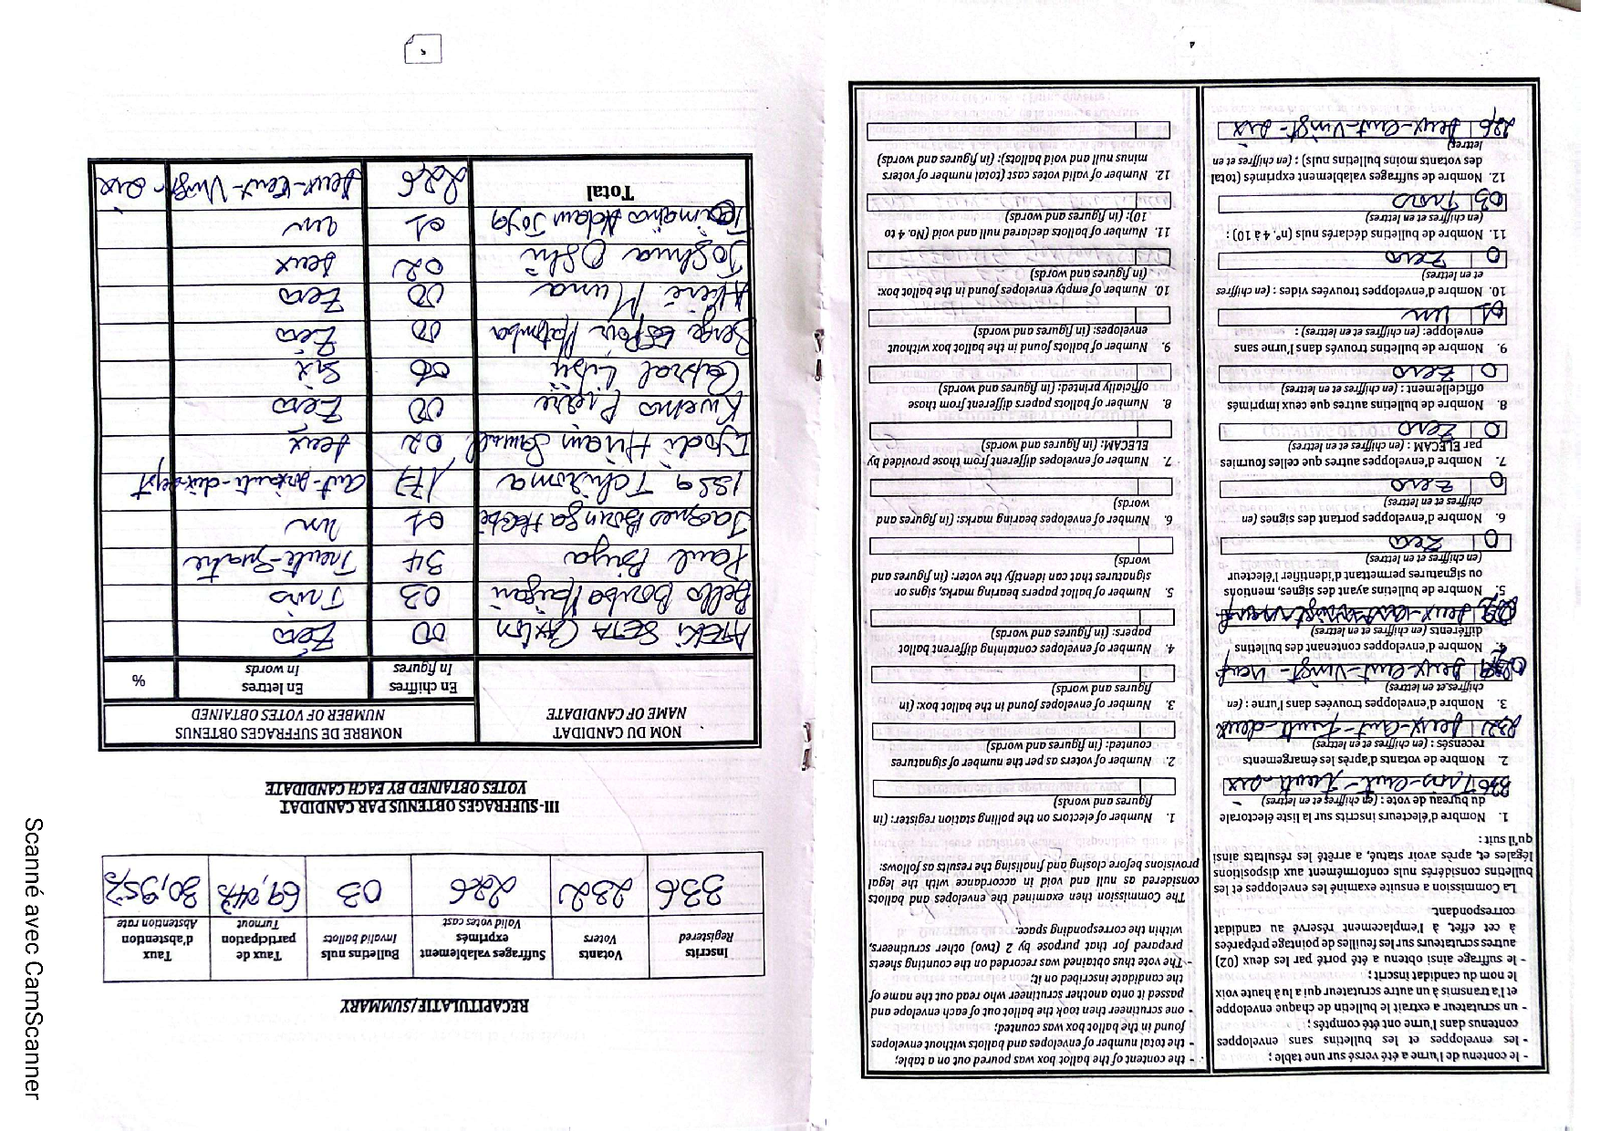 4
- le contenu de l'urne a été versé sur une table ;
- les enveloppes et les bulletins sans enveloppes
contenus dans l'urne ont été comptés ;
- un scrutateur a extrait le bulletin de chaque enveloppe
et l'a transmis à un autre scrutateur qui a lu à haute voix
le nom du candidat inscrit ;
- le suffrage ainsi obtenu a été porté par les deux (02)
autres scrutateurs sur les feuilles de pointage préparées
à cet effet, à l'emplacement réservé au candidat
correspondant.
La Commission a ensuite examiné les enveloppes et les
bulletins considérés nuls conformément aux dispositions
légales et, après avoir statué, a arrêté les résultats ainsi
qu'il suit :
1. Nombre d'électeurs inscrits sur la liste électorale
du bureau de vote : (en chiffres et en lettres)
336 Trois-cent-trente-six
2. Nombre de votants d'après les émargements
recensés : (en chiffres et en lettres)
232 deux-cent-trente-deux
3. Nombre d'enveloppes trouvées dans l'urne : (en
chiffres et en lettres)
Deux-cent-vingt-neuf
4. Nombre d'enveloppes contenant des bulletins
différents (en chiffres et en lettres)
5. Nombre de bulletins ayant des signes, mentions
ou signatures permettant d'identifier l'électeur
(en chiffres et en lettres)
0 Zero
6. Nombre d'enveloppes portant des signes (en
chiffres et en lettres)
0 Zero
7. Nombre d'enveloppes autres que celles fournies
par ELECAM : (en chiffres et en lettres)
0 Zero
8. Nombre de bulletins autres que ceux imprimés
officiellement : (en chiffres et en lettres)
0 Zero
9. Nombre de bulletins trouvés dans l'urne sans
enveloppe: (en chiffres et en lettres) :
01 un
10. Nombre d'enveloppes trouvées vides : (en chiffres
et en lettres)
0 Zero
11. Nombre de bulletins déclarés nuls (n°. 4 à 10) :
(en chiffres et en lettres)
03 Trois
12. Nombre de suffrages valablement exprimés (total
des votants moins bulletins nuls) : (en chiffres et en
lettres)
226 deux-cent-vingt-six
- the content of the ballot box was poured out on a table;
- the total number of envelopes and ballots without envelopes
found in the ballot box was counted;
- one scrutineer then took the ballot out of each envelope and
passed it onto another scrutineer who read out the name of
the candidate inscribed on it;
- The vote thus obtained was recorded on the counting sheets
prepared for that purpose by 2 (two) other scrutineers,
within the corresponding space.
The Commission then examined the envelopes and ballots
considered as null and void in accordance with the legal
provisions before closing and finalising the results as follows:
1. Number of electors on the polling station register: (in
figures and words)
2. Number of voters as per the number of signatures
counted: (in figures and words)
3. Number of envelopes found in the ballot box: (in
figures and words)
4. Number of envelopes containing different ballot
papers: (in figures and words)
5. Number of ballot papers bearing marks, signs or
signatures that can identify the voter: (in figures and
words)
6. Number of envelopes bearing marks: (in figures and
words)
7. Number of envelopes different from those provided by
ELECAM: (in figures and words)
8. Number of ballots papers different from those
officially printed: (in figures and words)
9. Number of ballots found in the ballot box without
envelopes: (in figures and words)
10. Number of empty envelopes found in the ballot box:
(in figures and words)
11. Number of ballots declared null and void (No. 4 to
10): (in figures and words)
12. Number of valid votes cast (total number of voters
minus null and void ballots): (in figures and words)
RECAPITULATIF/SUMMARY
Inscrits Registered | Votants Voters | Suffrages valablement exprimés Valid votes cast | Bulletins nuls Invalid ballots | Taux de participation Turnout | Taux d'abstention Abstention rate
336 | 232 | 226 | 03 | 69,047 | 30,953
III-SUFFRAGES OBTENUS PAR CANDIDAT
VOTES OBTAINED BY EACH CANDIDATE
NOM DU CANDIDAT NAME OF CANDIDATE | NOMBRE DE SUFFRAGES OBTENUS NUMBER OF VOTES OBTAINED
En chiffres In figures | En lettres In words | %
ATEKI SETA Caxton | 00 | Zéro
Bello Bouba Maigari | 03 | Trois
Paul Biya | 34 | Trente-Quatre
Jacques Bouga | 01 | un
Issa Tchiroma | 177 | cent-soixante-dix-sept
Iyodi Hiram Samuel | 02 | deux
Kwemo Pierre | 00 | Zero
Cabral Libii | 06 | Six
Serge Espoir Matomba | 00 | Zero
Akere Muna | 00 | Zero
Joshua Oshi | 02 | deux
Tomaino Ndam Joya | 01 | un
Total | 226 | deux-cent-vingt-six
Scanné avec CamScanner